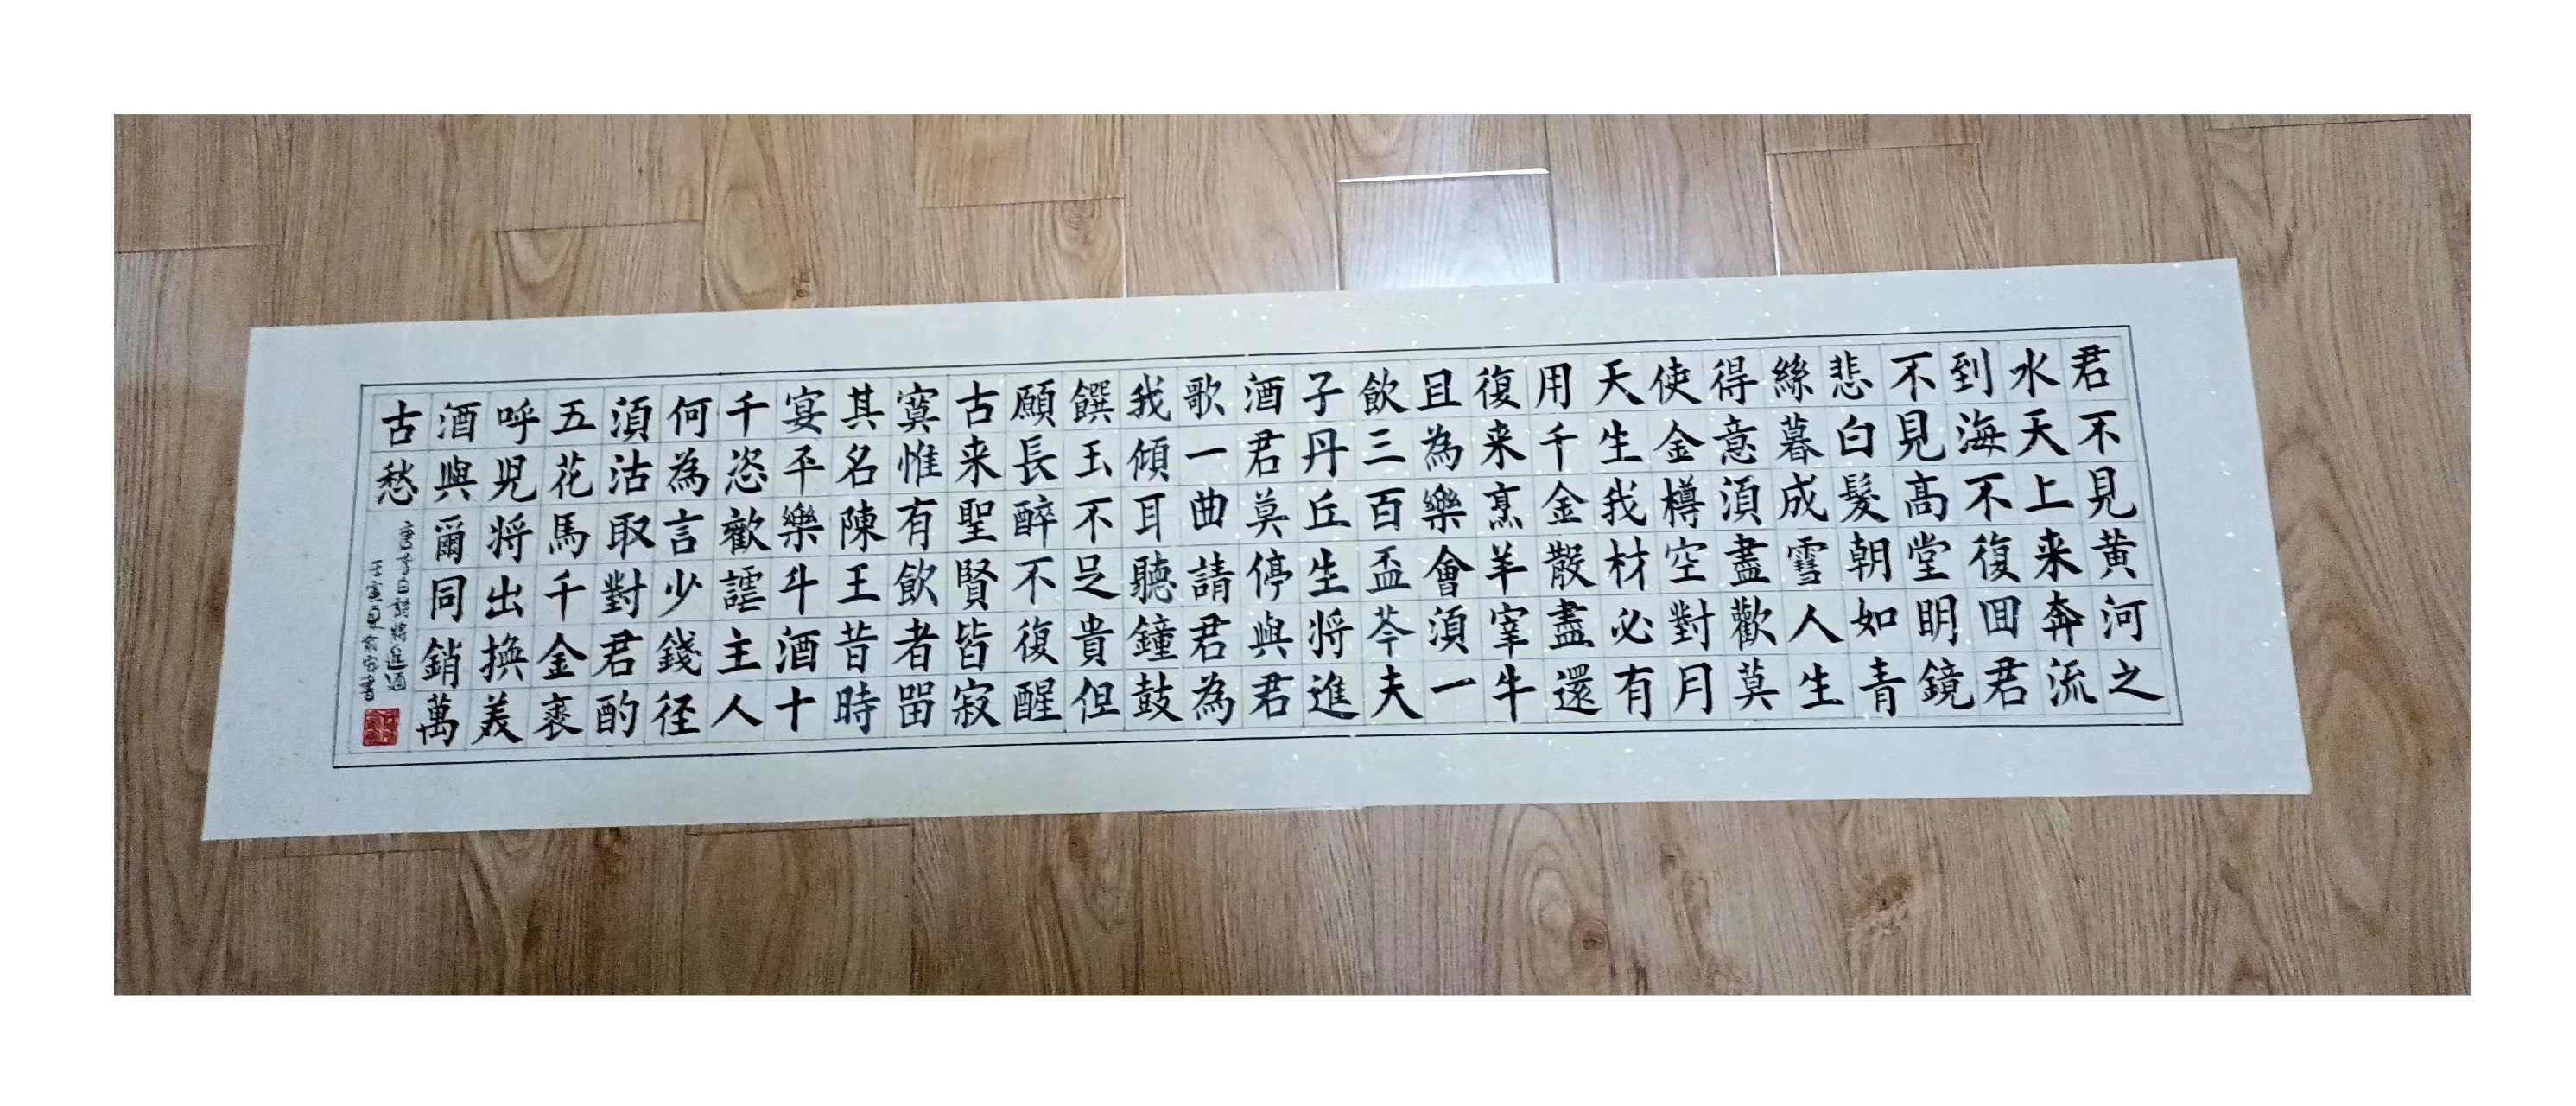 君不見黄河之
水天上来奔流
到海不復囬君
不見高堂明鏡
悲白髮朝如青
絲暮成雪人生
得意須盡歡莫
使金樽空對月
天生我材必有
用千金散盡還
復来烹羊宰牛
且為樂會須一
飲三百盃芩夫
子丹丘生将進
酒君莫停與君
歌一曲請君為
我傾耳聽鐘鼓
饌玉不足貴但
願長醉不復醒
古来聖賢皆寂
寞惟有飲者留
其名陳王昔時
宴平樂斗酒十
千恣歡謔主人
何為言少錢径
須沽取對君酌
五花馬千金裘
呼児将出換美
酒與爾同銷萬
古愁
唐李白詩將進酒
壬寅夏俞書